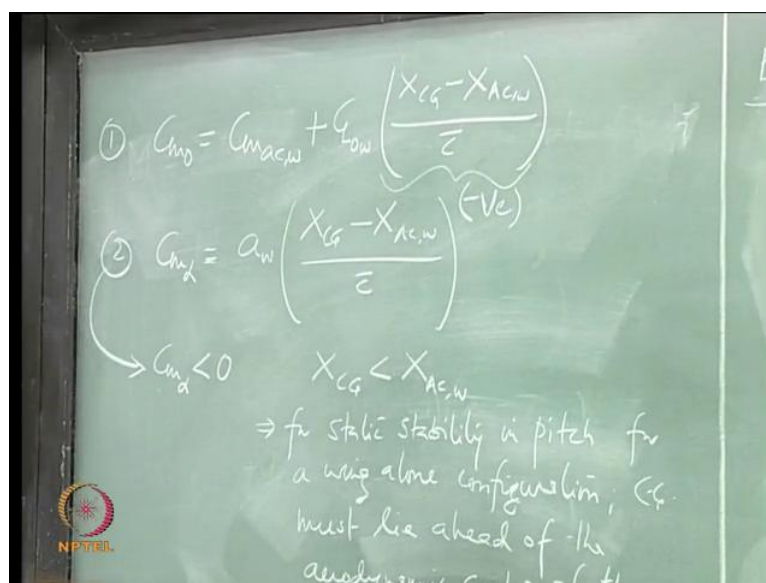 ① C_{m_0} = C_{m_{ac,w}} + C_{L_{0w}} ( (X_{CG} - X_{AC,w}) / c̄ )
(-Ve)
② C_{m_α} = a_w ( (X_{CG} - X_{AC,w}) / c̄ )
→ C_{m_α} < 0 X_{CG} < X_{AC,w}
⇒ for static stability in pitch for
a wing alone configuration, CG
must lie ahead of the
NPTEL